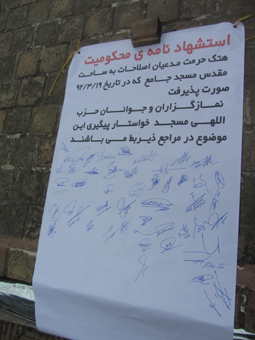 استشهاد نامه ی محکومیت
هتک حرمت مدعیان اصلاحات به ساحت
مقدس مسجد جامع که در تاریخ ۹۲/۳/۱۹
صورت پذیرفت
نمازگزاران و جوانان حزب
اللهی مسجد خواستار پیگیری این
موضوع در مراجع ذیربط می باشند